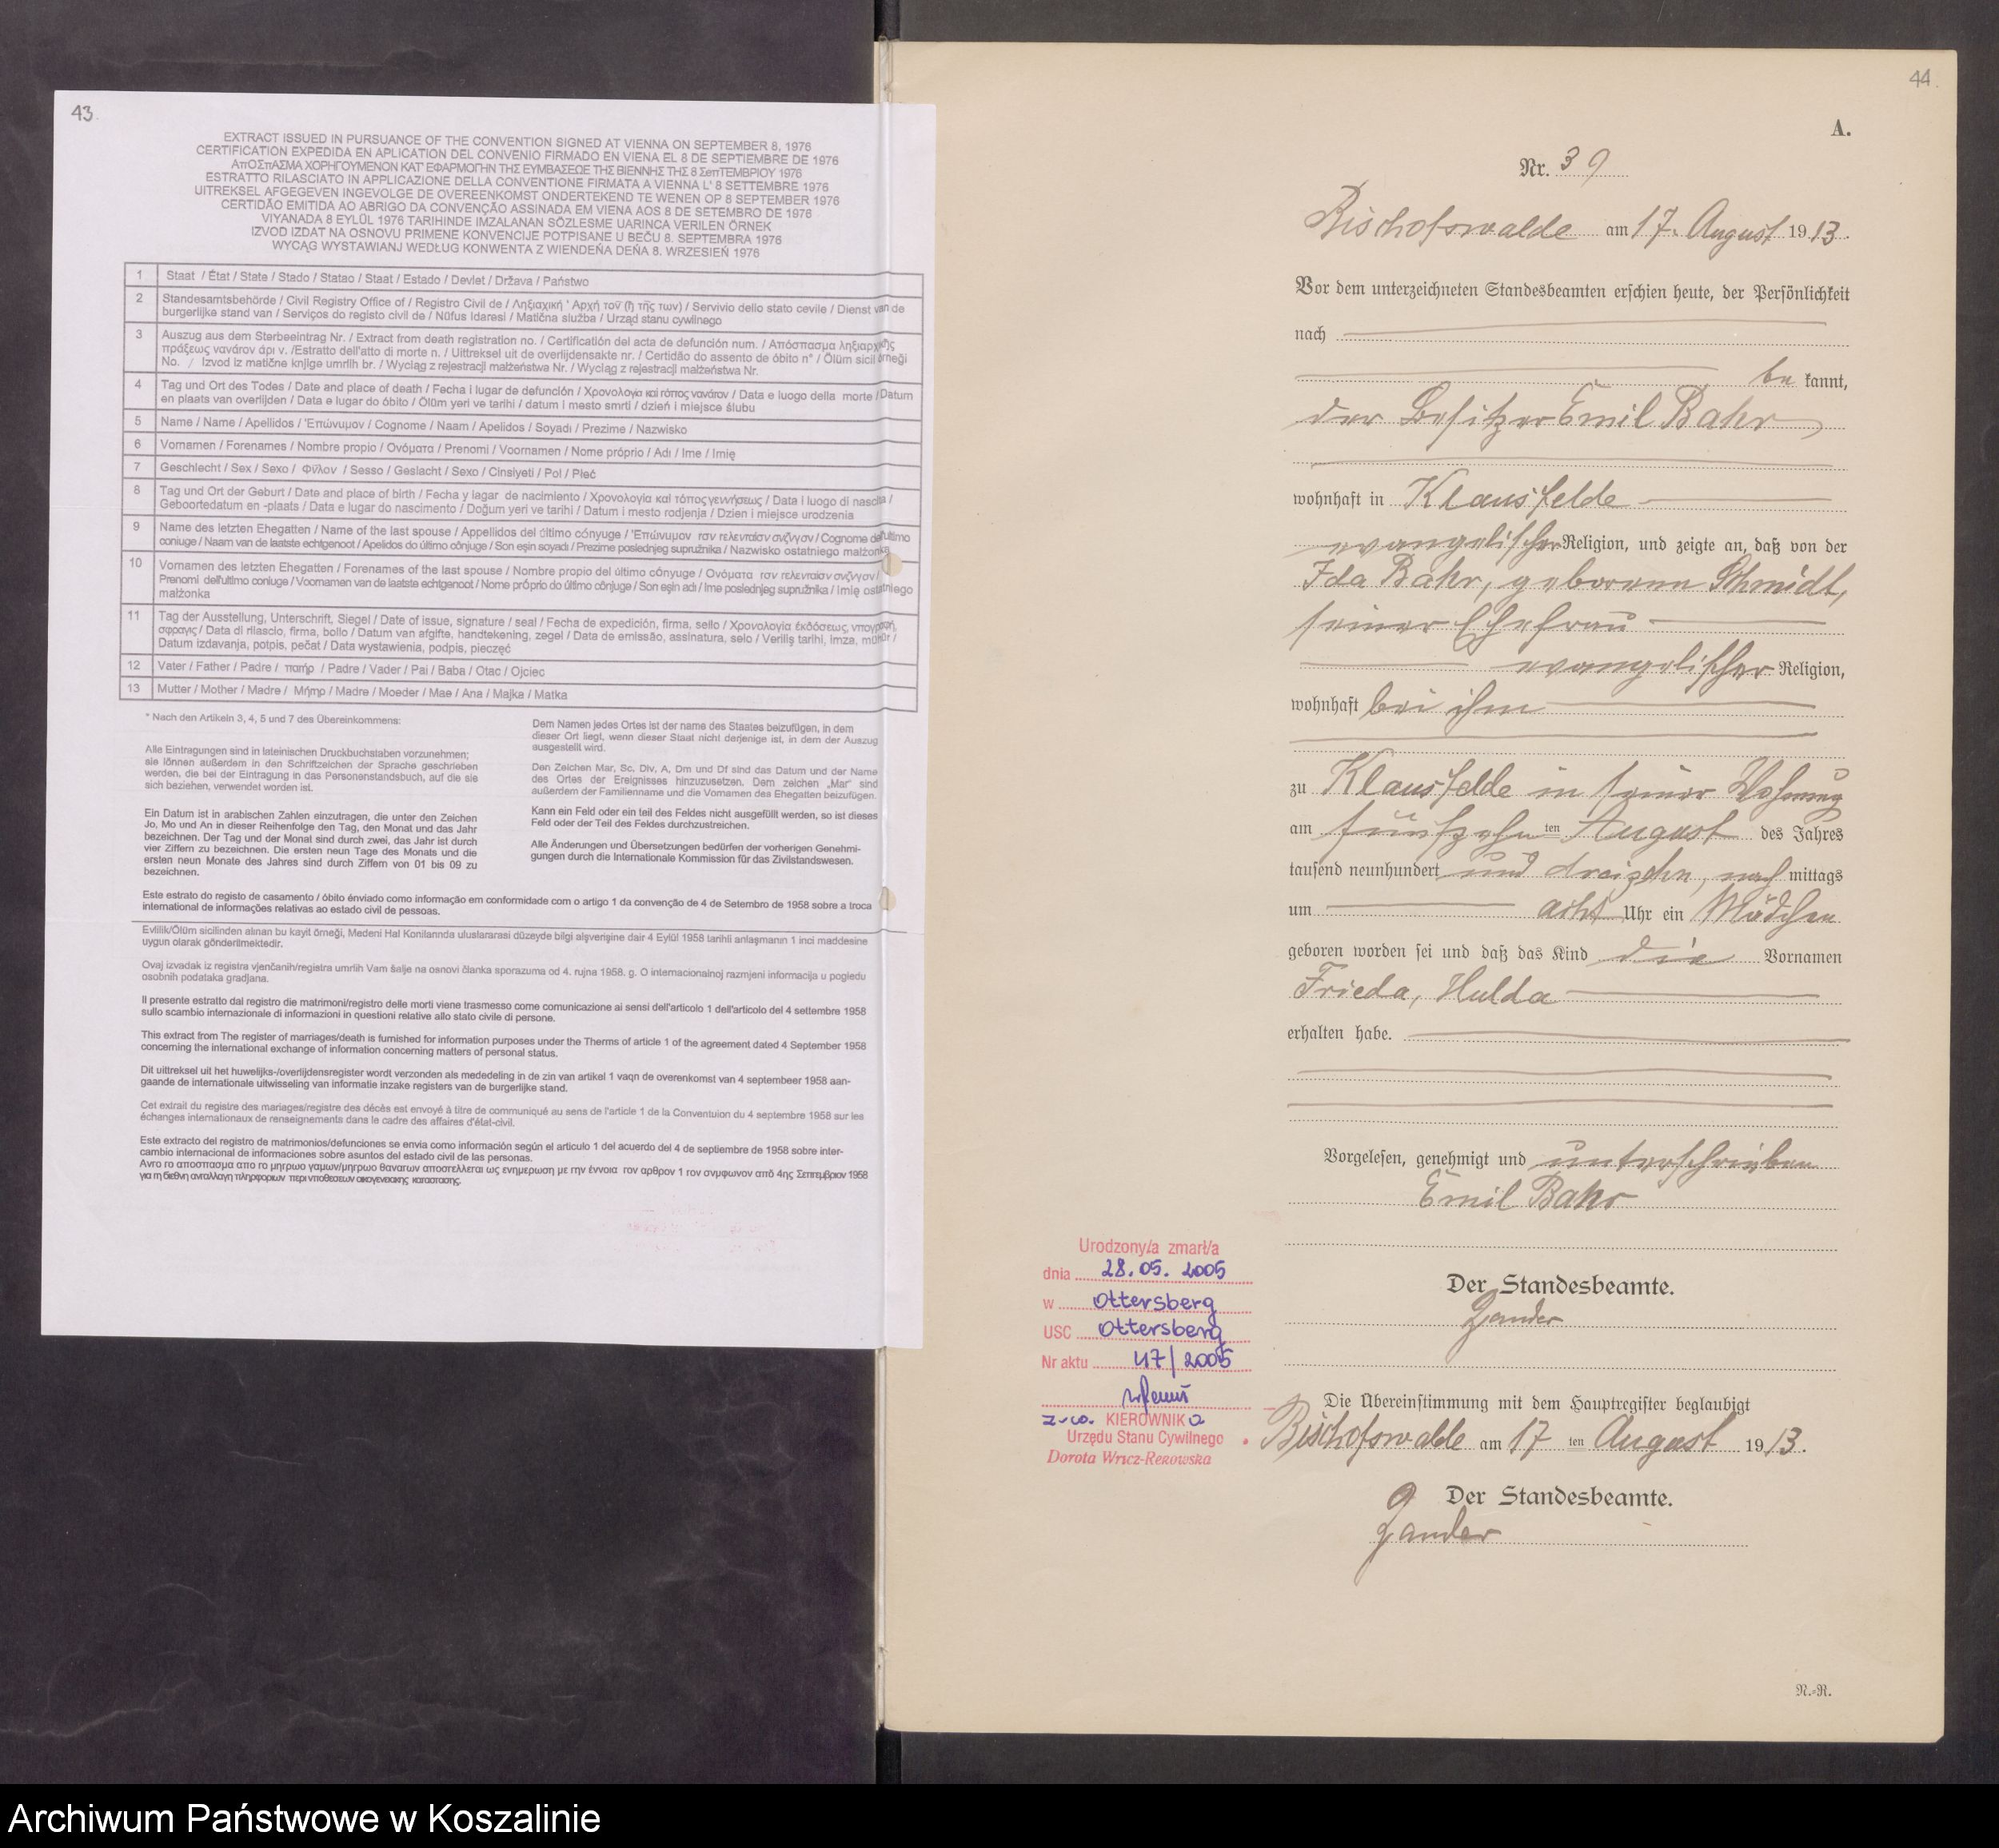 43
EXTRACT ISSUED IN PURSUANCE OF THE CONVENTION SIGNED AT VIENNA ON SEPTEMBER 8, 1976
CERTIFICATION EXPEDIDA EN APLICATION DEL CONVENIO FIRMADO EN VIENA EL 8 DE SEPTIEMBRE DE 1976
ΑπΟΣπΑΣΜΑ ΧΟΡΗΓΟΥΜΕΝΟΝ ΚΑΤ' ΕΦΑΡΜΟΓΗΝ ΤΗΣ ΕΥΜΒΑΣΕΩΕ ΤΗΣ ΒΙΕΝΝΗΣ ΤΗΣ 8 ΣεπΤΕΜΒΡΙΟΥ 1976
ESTRATTO RILASCIATO IN APPLICAZIONE DELLA CONVENTIONE FIRMATA A VIENNA L' 8 SETTEMBRE 1976
UITREKSEL AFGEGEVEN INGEVOLGE DE OVEREENKOMST ONDERTEKEND TE WENEN OP 8 SEPTEMBER 1976
CERTIDÃO EMITIDA AO ABRIGO DA CONVENÇÃO ASSINADA EM VIENA AOS 8 DE SETEMBRO DE 1976
VIYANADA 8 EYLÜL 1976 TARIHINDE IMZALANAN SÖZLESME UARINCA VERILEN ÖRNEK
IZVOD IZDAT NA OSNOVU PRIMENE KONVENCIJE POTPISANE U BEČU 8. SEPTEMBRA 1976
WYCĄG WYSTAWIANJ WEDŁUG KONWENTA Z WIENDEŃA DEŃA 8. WRZESIEŃ 1976
1 Staat / État / State / Stado / Statao / Staat / Estado / Devlet / Država / Państwo
2 Standesamtsbehörde / Civil Registry Office of / Registro Civil de / Ληξιαχική ' Αρχή τοῦ (ἢ τῆς των) / Servivio dello stato cevile / Dienst van de
burgerlijke stand van / Serviços do registo civil de / Nüfus Idaresi / Matična služba / Urząd stanu cywilnego
3 Auszug aus dem Sterbeeintrag Nr. / Extract from death registration no. / Certificatión del acta de defunción num. / Απόσπασμα ληξιαρχικής
πράξεως νανάτον άρι ν. /Estratto dell'atto di morte n. / Uittreksel uit de overlijdensakte nr. / Certidão do assento de óbito n° / Ölüm sicil örneği
No. / Izvod iz matične knjige umrlih br. / Wyciąg z rejestracji małżeństwa Nr. / Wyciąg z rejestracji małżeństwa Nr.
4 Tag und Ort des Todes / Date and place of death / Fecha i lugar de defunción / Χρονολογία καί τόπος νανάτου / Data e luogo della morte / Datum
en plaats van overlijden / Data e lugar do óbito / Ölüm yeri ve tarihi / datum i mesto smrti / dzień i miejsce ślubu
5 Name / Name / Apellidos / 'Επώνυμον / Cognome / Naam / Apelidos / Soyadı / Prezime / Nazwisko
6 Vornamen / Forenames / Nombre propio / Ονόματα / Prenomi / Voornamen / Nome próprio / Adı / Ime / Imię
7 Geschlecht / Sex / Sexo / Φῦλον / Sesso / Geslacht / Sexo / Cinsiyeti / Pol / Płeć
8 Tag und Ort der Geburt / Date and place of birth / Fecha y lagar de nacimiento / Χρονολογία καί τόπος γεννήσεως / Data i luogo di nascita /
Geboortedatum en -plaats / Data e lugar do nascimento / Doğum yeri ve tarihi / Datum i mesto rodjenja / Dzien i miejsce urodzenia
9 Name des letzten Ehegatten / Name of the last spouse / Appellidos del último cónyuge / 'Επώνυμον τον τελενταίον ανζνγον / Cognome dell'ultimo
coniuge / Naam van de laatste echtgenoot / Apelidos do último cônjuge / Son eşin soyadı / Prezime posiednjeg supružnika / Nazwisko ostatniego malżonka
10 Vornamen des letzten Ehegatten / Forenames of the last spouse / Nombre propio del último cónyuge / Ονόματα τον τελενταίον ανζνγον /
Prenomi dell'ultimo coniuge / Voornamen van de laatste echtgenoot / Nome próprio do último cônjuge / Son eşin adı / Ime poslednjeg supružnika / Imię ostatniego
małżonka
11 Tag der Ausstellung, Unterschrift, Siegel / Date of issue, signature / seal / Fecha de expedición, firma, sello / Χρονολογία έκδόσεως, υπογραφή,
σφραγις / Data di rilascio, firma, bollo / Datum van afgifte, handtekening, zegel / Data de emissão, assinatura, selo / Veriliş tarihi, imza, mühür /
Datum izdavanja, potpis, pečat / Data wystawienia, podpis, pieczęć
12 Vater / Father / Padre / πατήρ / Padre / Vader / Pai / Baba / Otac / Ojciec
13 Mutter / Mother / Madre / Μήτηρ / Madre / Moeder / Mae / Ana / Majka / Matka
* Nach den Artikeln 3, 4, 5 und 7 des Übereinkommens:
Alle Eintragungen sind in lateinischen Druckbuchstaben vorzunehmen;
sie lönnen außerdem in den Schriftzeichen der Sprache geschrieben
werden, die bei der Eintragung in das Personenstandsbuch, auf die sie
sich beziehen, verwendet worden ist.
Ein Datum ist in arabischen Zahlen einzutragen, die unter den Zeichen
Jo, Mo und An in dieser Reihenfolge den Tag, den Monat und das Jahr
bezeichnen. Der Tag und der Monat sind durch zwei, das Jahr ist durch
vier Ziffern zu bezeichnen. Die ersten neun Tage des Monats und die
ersten neun Monate des Jahres sind durch Ziffern von 01 bis 09 zu
bezeichnen.
Dem Namen jedes Ortes ist der name des Staates beizufügen, in dem
dieser Ort liegt, wenn dieser Staat nicht derjenige ist, in dem der Auszug
ausgestellt wird.
Den Zeichen Mar, Sc, Div, A, Dm und Df sind das Datum und der Name
des Ortes der Ereignisses hinzuzusetzen. Dem zeichen „Mar" sind
außerdem der Familienname und die Vornamen des Ehegatten beizufügen.
Kann ein Feld oder ein teil des Feldes nicht ausgefüllt werden, so ist dieses
Feld oder der Teil des Feldes durchzustreichen.
Alle Änderungen und Übersetzungen bedürfen der vorherigen Genehmi-
gungen durch die Internationale Kommission für das Zivilstandswesen.
Este estrato do registo de casamento / óbito énviado como informação em conformidade com o artigo 1 da convenção de 4 de Setembro de 1958 sobre a troca
international de informações relativas ao estado civil de pessoas.
Evlilik/Ölüm sicilinden alınan bu kayit örneği, Medeni Hal Konilarınnda uluslararasi düzeyde bilgi alışverişine dair 4 Eylül 1958 tarihli anlaşmanın 1 inci maddesine
uygun olarak gönderilmektedir.
Ovaj izvadak iz registra vjenčanih/registra umrlih Vam šalje na osnovi članka sporazuma od 4. rujna 1958. g. O internacionainoj razmjeni informacija u pogledu
osobnih podataka gradjana.
Il presente estratto dal registro die matrimoni/registro delle morti viene trasmesso come comunicazione ai sensi dell'articolo 1 dell'articolo del 4 settembre 1958
sullo scambio internazionale di informazioni in questioni relative allo stato civile di persone.
This extract from The register of marriages/death is furnished for information purposes under the Therms of article 1 of the agreement dated 4 September 1958
concerning the international exchange of information concerning matters of personal status.
Dit uittreksel uit het huwelijks-/overlijdensregister wordt verzonden als mededeling in de zin van artikel 1 vaqn de overenkomst van 4 septembeer 1958 aan-
gaande de internationale uitwisseling van informatie inzake registers van de burgerlijke stand.
Cet extrait du registre des mariages/registre des décès est envoyé à titre de communiqué au sens de l'article 1 de la Conventuion du 4 septembre 1958 sur les
échanges internationaux de renseignements dans le cadre des affaires d'état-civil.
Este extracto del registro de matrimonios/defunciones se envia como información según el articulo 1 del acuerdo del 4 de septiembre de 1958 sobre inter-
cambio internacional de informaciones sobre asuntos del estado civil de las personas.
Ανro ro αποσπασμα απο ro μηrρωο γαμων/μηrρωο θανατων αποστελλεται ως ενημερωση με την έννοια rον αρθρον 1 rον ανμφωνον από 4ης Σεπτεμβριον 1958
για τη διεθνη ανταλλαγη πληρφοριων περι νποθεσεων οικογενειακης καταστασης.
44.
A.
Nr. 39
Bischofswalde am 17. August 1913.
Vor dem unterzeichneten Standesbeamten erschien heute, der Persönlichkeit
nach
be kannt,
der Besitzer Emil Bahr
wohnhaft in Klausfelde
evangelischer Religion, und zeigte an, daß von der
Ida Bahr, geborenen Schmidt,
seiner Ehefrau
evangelischer Religion,
wohnhaft bei ihm
zu Klausfelde in seiner Wohnung
am fünfzehn ten August des Jahres
tausend neunhundert und dreizehn, nach mittags
um acht Uhr ein Mädchen
geboren worden sei und daß das Kind die Vornamen
Frieda, Hulda
erhalten habe.
Vorgelesen, genehmigt und unterschrieben
Emil Bahr
Der Standesbeamte.
Zander
Die Übereinstimmung mit dem Hauptregister beglaubigt
Bischofswalde am 17 ten August 1913.
Der Standesbeamte.
Zander
Urodzony/a zmarł/a
dnia 28.05.2005
w Ottersberg
USC Ottersberg
Nr aktu 47/2005
z-ca. KIEROWNIKa
Urzędu Stanu Cywilnego
Dorota Wricz-Rekowska
N.-R.
Archiwum Państwowe w Koszalinie